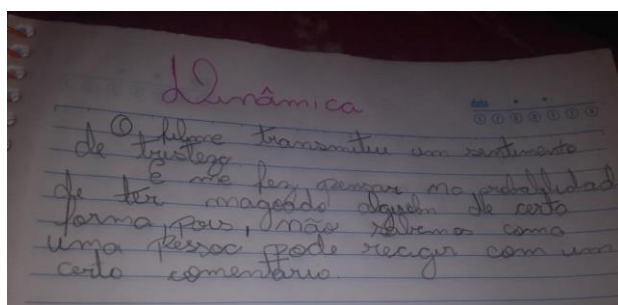 Dinâmica
data
O filme transmitiu um sentimento
de tristeza
E me fez pensar na probalidad
de ter magoado alguém de certa
forma, pois, não sabemos como
uma pessoa pode reagir com um
certo comentário.